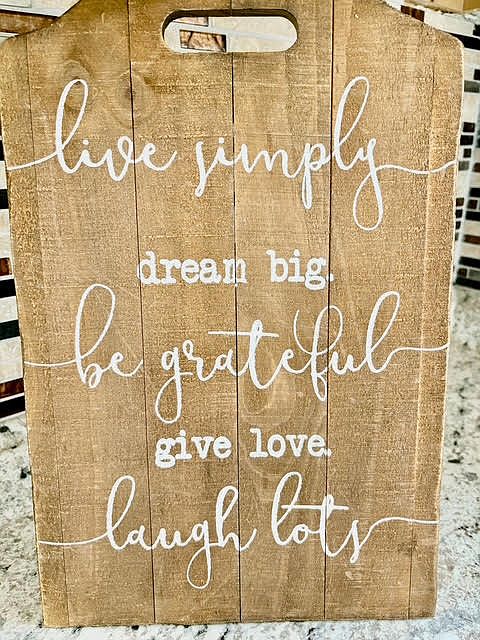 live simply
dream big.
be grateful
give love.
laugh lots